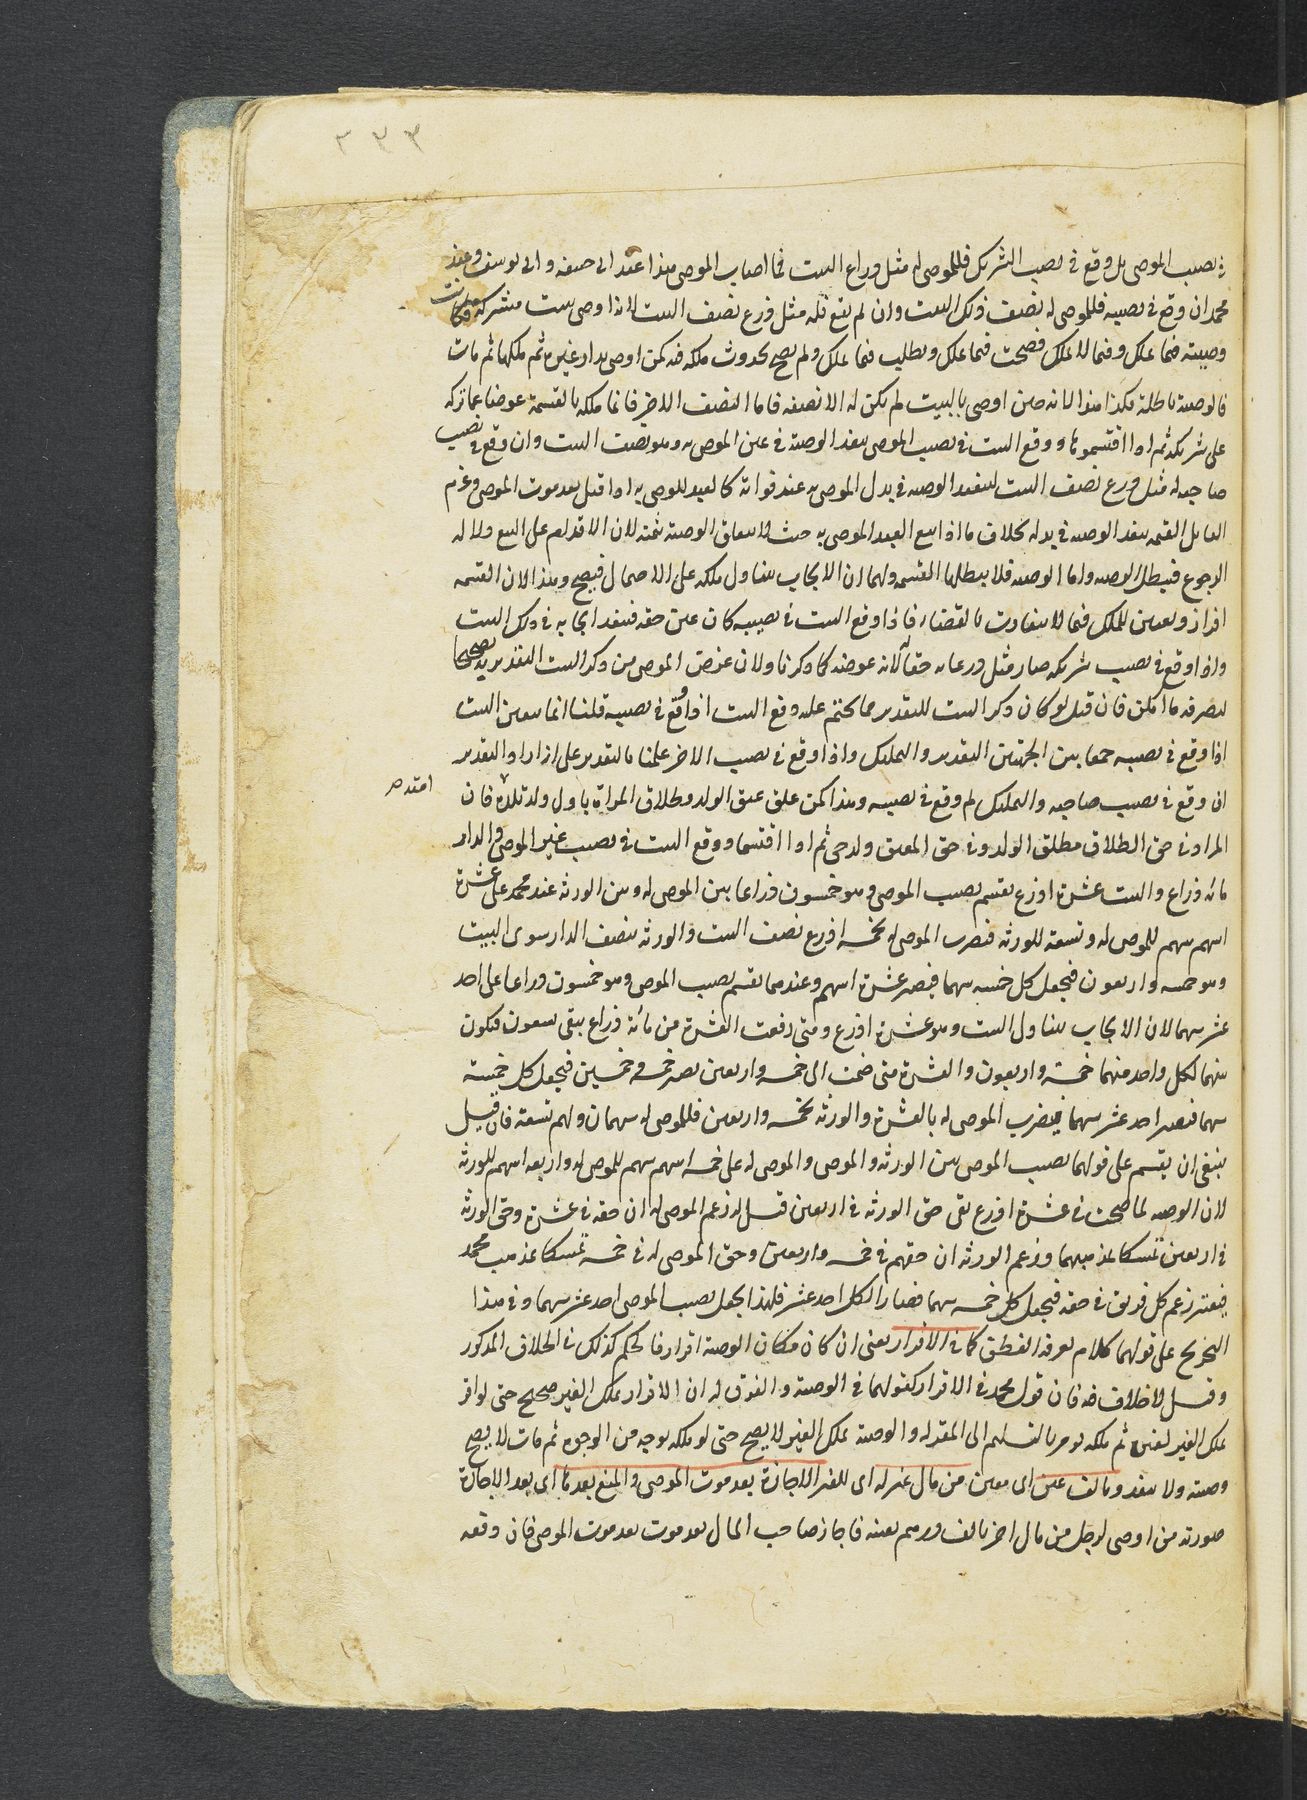 ٣٣٣
في نصيب الموصي بل وقع في نصيب الشريك فللموصى له مثل ذراع البيت فيما اصاب الموصي هذا عند ابي حنيفه وابي يوسف وعند
محمد ان وقع في نصيبه فللموصى له نصف ذلك البيت وان لم يقع فله مثل ذرع نصف البيت لانه اوصى ببيت مشترك فكانت
وصيته فيما يملك وفيما لا يملك فصحت فيما يملك وبطلت فيما لا يملك ولم يصح بحدوث ملكه فيه كمن اوصى بدار غيره ثم ملكها ثم مات
فالوصية باطلة هكذا هنا لانه حين اوصى بالبيت لم يكن له الا نصفه فاما النصف الاخر فانما ملكه بالقسمة عوضا عما تركه
على شريكه ثم اذا اقتسموها ووقع البيت في نصيب الموصي ينفذ الوصية في عين الموصى به وهو نصف البيت وان وقع في نصيب
صاحبه له مثل ذرع نصف البيت لتنفيذ الوصيه في بدل الموصى به عند فواته كالعبد الموصى به اذا قتل بعد موت الموصي وغرم
القاتل القيمه ينفذ الوصيه في بدله بخلاف ما اذا بيع العبد الموصى به حيث لا يتعلق الوصية بثمنه لان الاقدام على البيع دلاله
الرجوع فيبطل الوصيه واما الوصيه فلا يبطلها القسمه ولهما ان الايجاب يتناول ملكه على الاحتمال فيصح وهذا لان القسمه
افراز وتعيين للملك فيما لا يتفاوت بالقضاء فاذا وقع البيت في نصيبه كان عين حقه فينفذ ايجابه في ذلك البيت
واذا وقع في نصيب شريكه صار مثل ذرعانه حقا له لانه عوضه كما ذكرنا ولان غرض الموصي من ذكر البيت التقدير به تصحيحا
لتصرفه ما امكن فان قيل لو كان ذكر البيت للتقدير مما يحتم عليه دفع البيت اذا وقع في نصيبه قلنا انما يتعين البيت
اذا وقع في نصيبه جمعا بين الجهتين التقدير والتمليك واذا وقع في نصيب الاخر عملنا بالتقدير على انه اراد التقدير
ان وقع في نصيب صاحبه والتمليك لو وقع في نصيبه وهذا كمن علق عتق الولد وطلاق المراة باول ولد تلده فان
امته صـ
المراد في حق الطلاق مطلق الولد وفي حق العتق ولد حي ثم اذا اقتسما ووقع البيت في نصيب غير الموصي والدار
مائه ذراع والبيت عشرة اذرع يقسم نصيب الموصي وهو خمسون ذراعا بين الموصى له وبين الورثه عند محمد على عشرة
اسهم سهم للموصى له وتسعة للورثه فيضرب الموصى له بخمسه اذرع نصف البيت والورثه بنصف الدار سوى البيت
وهو خمسه واربعون فيجعل كل خمسه سهما فيصير عشرة اسهم وعندهما يقسم نصيب الموصي وهو خمسون ذراعا على احد
عشر سهما لان الايجاب يتناول البيت وهو عشرة اذرع ومتى رفعت العشرة من مائة ذراع يبقى تسعون فيكون
بينهما لكل واحد منهما خمسة واربعون والعشرة متى ضمت الى خمسه واربعين يصير خمسة وخمسين فيجعل كل خمسة
سهما فيصير احد عشر سهما فيضرب الموصى له بالعشرة والورثه بخمسه واربعين فللموصى له سهمان ولهم تسعة فان قيل
ينبغي ان يقسم على قولهما نصيب الموصي بين الورثه والموصي والموصى له على خمسه اسهم سهم للموصى له واربعه اسهم للورثه
لان الوصيه لما صحت في عشرة اذرع بقي حق الورثه في اربعين قيل له زعم الموصى له ان حقه في عشرة وحق الورثه
في اربعين تمسكا بمذهبهما وزعم الورثه ان حقهم في خمسه واربعين وحق الموصى له في خمسة تمسكا بمذهب محمد
فيعتبر زعم كل فريق في حقه فيجعل كل خمسه سهما فصار الكل احد عشر فلهذا يجعل نصيب الموصي احد عشر سهما وفي هذا
التخريج على قولهما كلام يعرفه الفطن كما في الاقرار يعني ان كان مكان الوصية اقرار فالحكم كذلك في الخلاف المذكور
وقيل لا خلاف فيه فان قول محمد في الاقرار كقولهما في الوصية والفرق له ان الاقرار بملك الغير صحيح حتى لو اقر
بملك الغير لغيره ثم ملكه يومر بالتسليم الى المقر له والوصية بملك الغير لا يصح حتى لو ملكه بوجه من الوجوه ثم مات لا يصح
وصيته ولا ينفذ وبالف عين اى معين من مال غيره له اى للغير الاجازة بعد موت الموصي والمنع بعدها اى بعد الاجازة
صورته من اوصى لرجل من مال اخر بالف درهم بعينه فاجاز صاحب المال بعد موت بعد موت الموصي فان دفعه